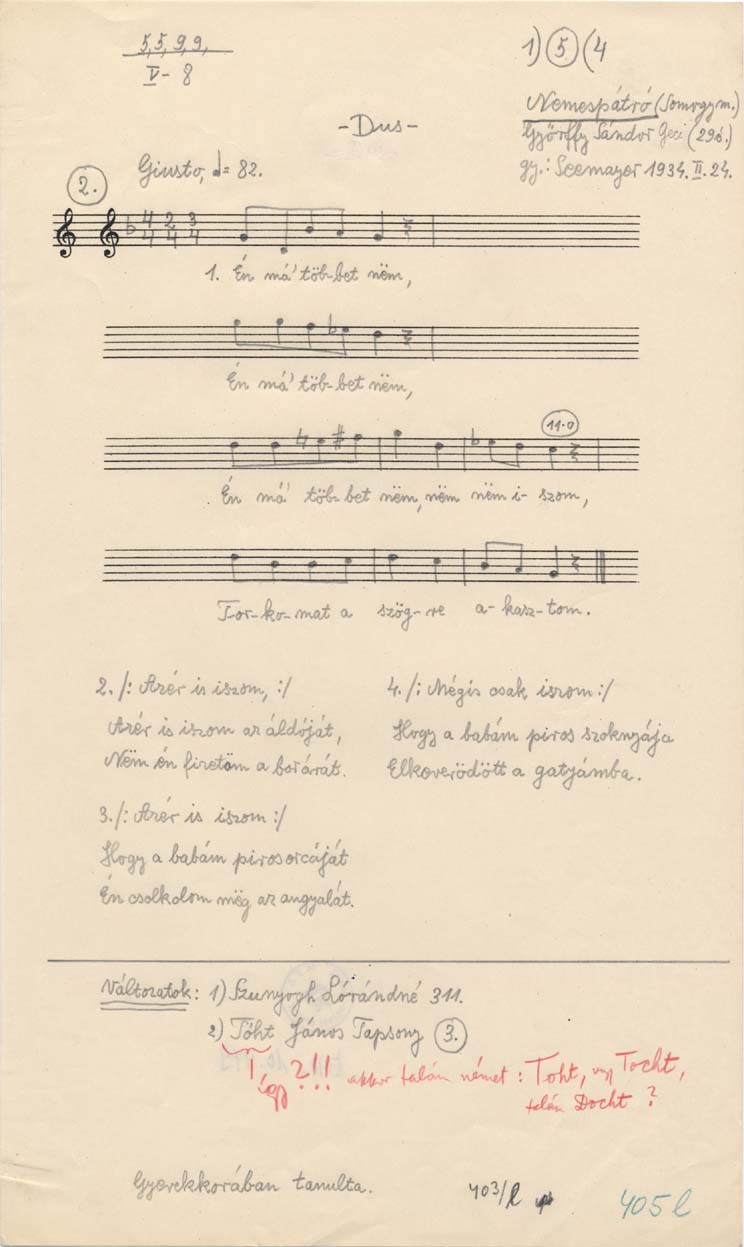 5, 5, 9, 9,
V - 8
1) 5 (4
Nemespátró (Somogy m.)
Győrffy Sándor Geci (296.)
gy.: Seemayer 1934. II. 24.
- Dus -
2.
Giusto, = 82.
4 2 3
4 4 4
1. Én má' töb-bet nëm,
Én má' töb-bet nëm,
11.0
Én má' töb-bet nëm, nëm nëm i- szom,
Tor-ko-mat a szög-re a-kasz-tom.
2. /: Azér is iszom, :/
Azér is iszom az áldóját,
Nëm én fizetöm a borárát.
3. /: Azér is iszom :/
Hogy a babám piros orcáját
Én csolkolom mëg az angyalát.
4. /: Mégis csak iszom :/
Hogy a babám piros szoknyája
Elkoverödött a gatyámba.
Változatok: 1) Szunyogh Lórándné 311.
2) Töht János Tapsony 3.
így?!! akkor talán német: Toht, vagy Tocht,
talán Docht?
Gyerekkorában tanulta.
403/l
405 l